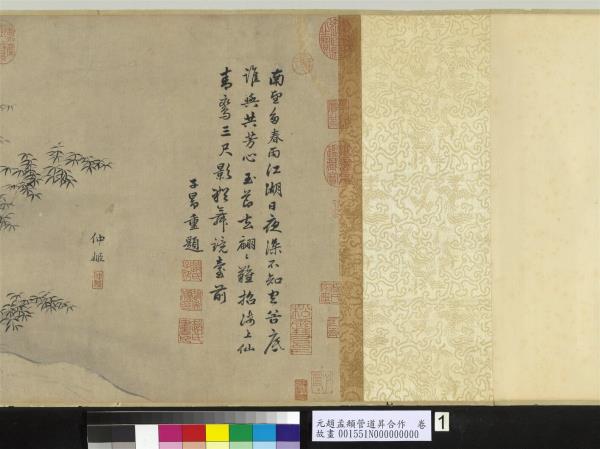 南望多春雨江湖日夜深不知空谷底
誰與共芳心玉去翩〻難招海上仙
青鸞三尺影舞鏡臺前
子昂重題
仲姬
元趙孟頫管道昇合作 卷
故畫 001551N000000000
1